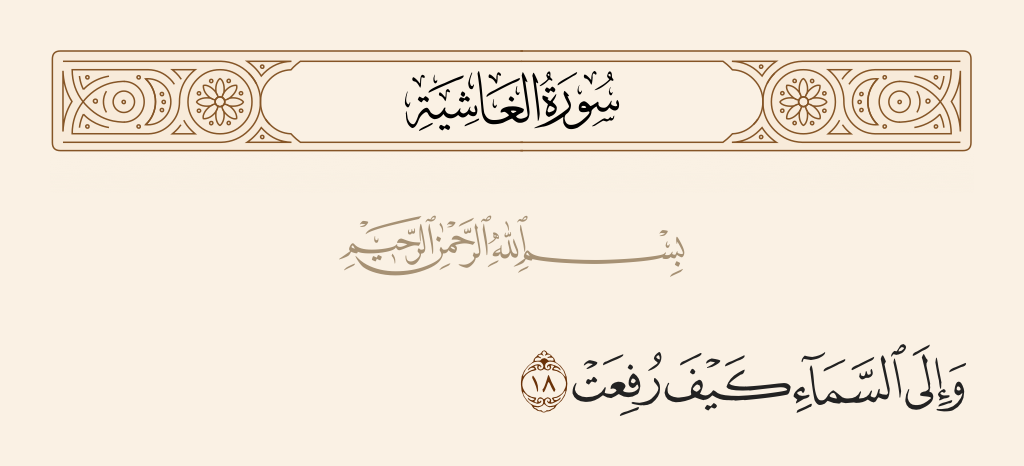 سُورَةُ الغَاشِيَةِ
بِسْمِ ٱللَّهِ ٱلرَّحْمَٰنِ ٱلرَّحِيمِ
وَإِلَى ٱلسَّمَآءِ كَيْفَ رُفِعَتْ ١٨